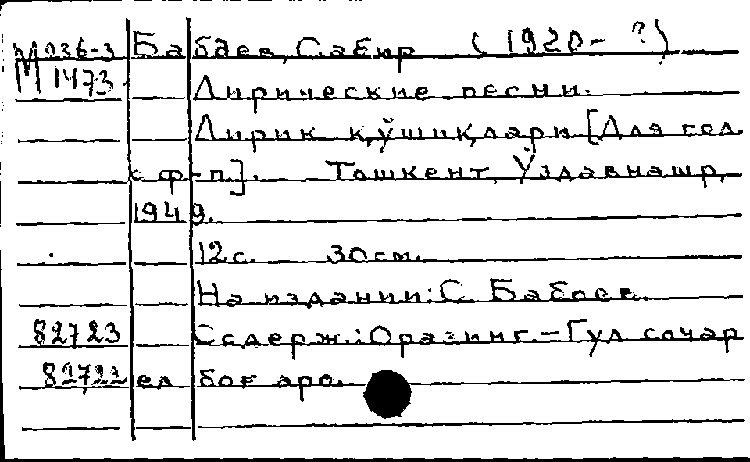 М 036-3 Бабаев, Сабир (1920- ?)
М 1473
Лирические песни.
Лирик қўшиқлари [Для гол.
с ф-п.]. Тошкент, Ўздавнашр,
1949.
12 с. 30 см.
На издании: С. Бабоев.
82723 Содерж.: Оразинг. - Гул сочар
82722 ел боғ аро.